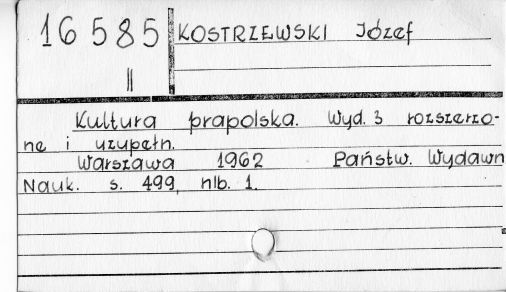 16 585 KOSTRZEWSKI Józef
II
Kultura prapolska. Wyd. 3 rozszerzo-
ne i uzupełn.
Warszawa 1962 Państw. Wydawn
Nauk. s. 499, nlb. 1.